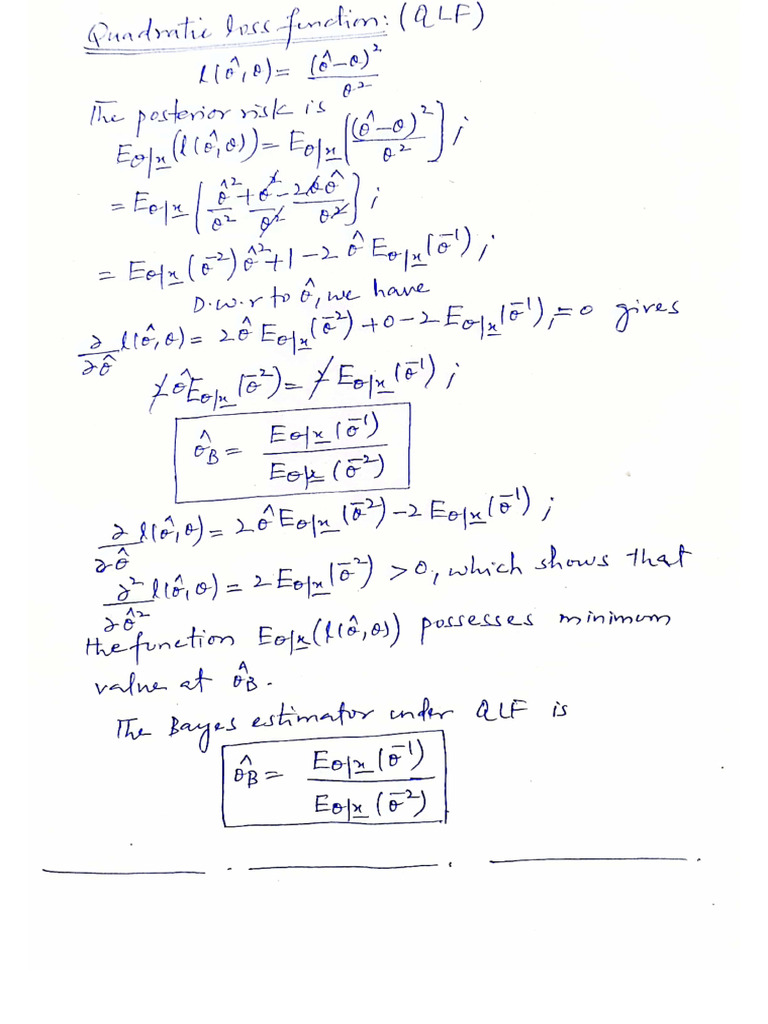 Quadratic loss function: (QLF)
l(θ̂, θ) = (θ̂-θ)² / θ²
The posterior risk is
E_θ|x (l(θ̂, θ)) = E_θ|x [(θ̂-θ)² / θ²] ;
= E_θ|x [θ̂²/θ² + θ²/θ² - 2θθ̂/θ²] ;
= E_θ|x (θ⁻²) θ̂² + 1 - 2 θ̂ E_θ|x (θ⁻¹) ;
D.w.r to θ̂, we have
∂/∂θ̂ l(θ̂, θ) = 2θ̂ E_θ|x (θ⁻²) + 0 - 2 E_θ|x (θ⁻¹) ; = 0 gives
2 θ̂ E_θ|x (θ⁻²) = 2 E_θ|x (θ⁻¹) ;
θ̂_B = E_θ|x (θ⁻¹) / E_θ|x (θ⁻²)
∂/∂θ̂ l(θ̂, θ) = 2θ̂ E_θ|x (θ⁻²) - 2 E_θ|x (θ⁻¹) ;
∂²/∂θ̂² l(θ̂, θ) = 2 E_θ|x (θ⁻²) > 0, which shows that
the function E_θ|x (l(θ̂, θ)) possesses minimum
value at θ̂_B.
The Bayes estimator under QLF is
θ̂_B = E_θ|x (θ⁻¹) / E_θ|x (θ⁻²)